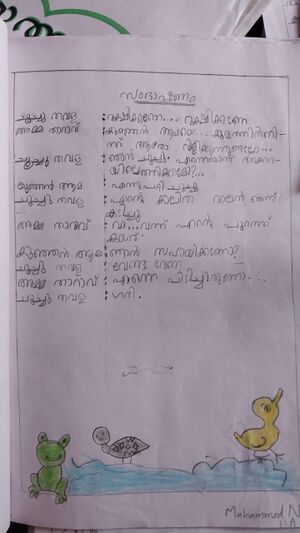 സംഭാഷണം
ചൂച്ചു തവള : രക്ഷിക്കണേ.... രക്ഷിക്കണേ
അമ്മ താറാവ് : കുഞ്ഞൻ ആമയെ... കുളത്തിൽനി
ന്ന് ആരോ വിളിക്കുന്നുണ്ടല്ലോ...
ചൂച്ചു തവള : ഞാൻ ചൂച്ചു. എന്നെയൊന്ന്
കുഞ്ഞൻ ആമ : എന്തുപറ്റി ചൂച്ചു
ചൂച്ചു തവള : എന്റെ കാലിൽ ഞണ്ട്
കടിച്ചു
അമ്മ താറാവ് : വാ...വന്ന് എന്റെ പുറത്ത്
കയറ്
കുഞ്ഞൻ ആമ : ഞാൻ സഹായിക്കണോ?
ചൂച്ചു തവള : വേണ്ട വേണ്ട
അമ്മ താറാവ് : എന്നെ പിടിച്ചിരുന്നോ...
ചൂച്ചു തവള : ശരി.
Muhammed N